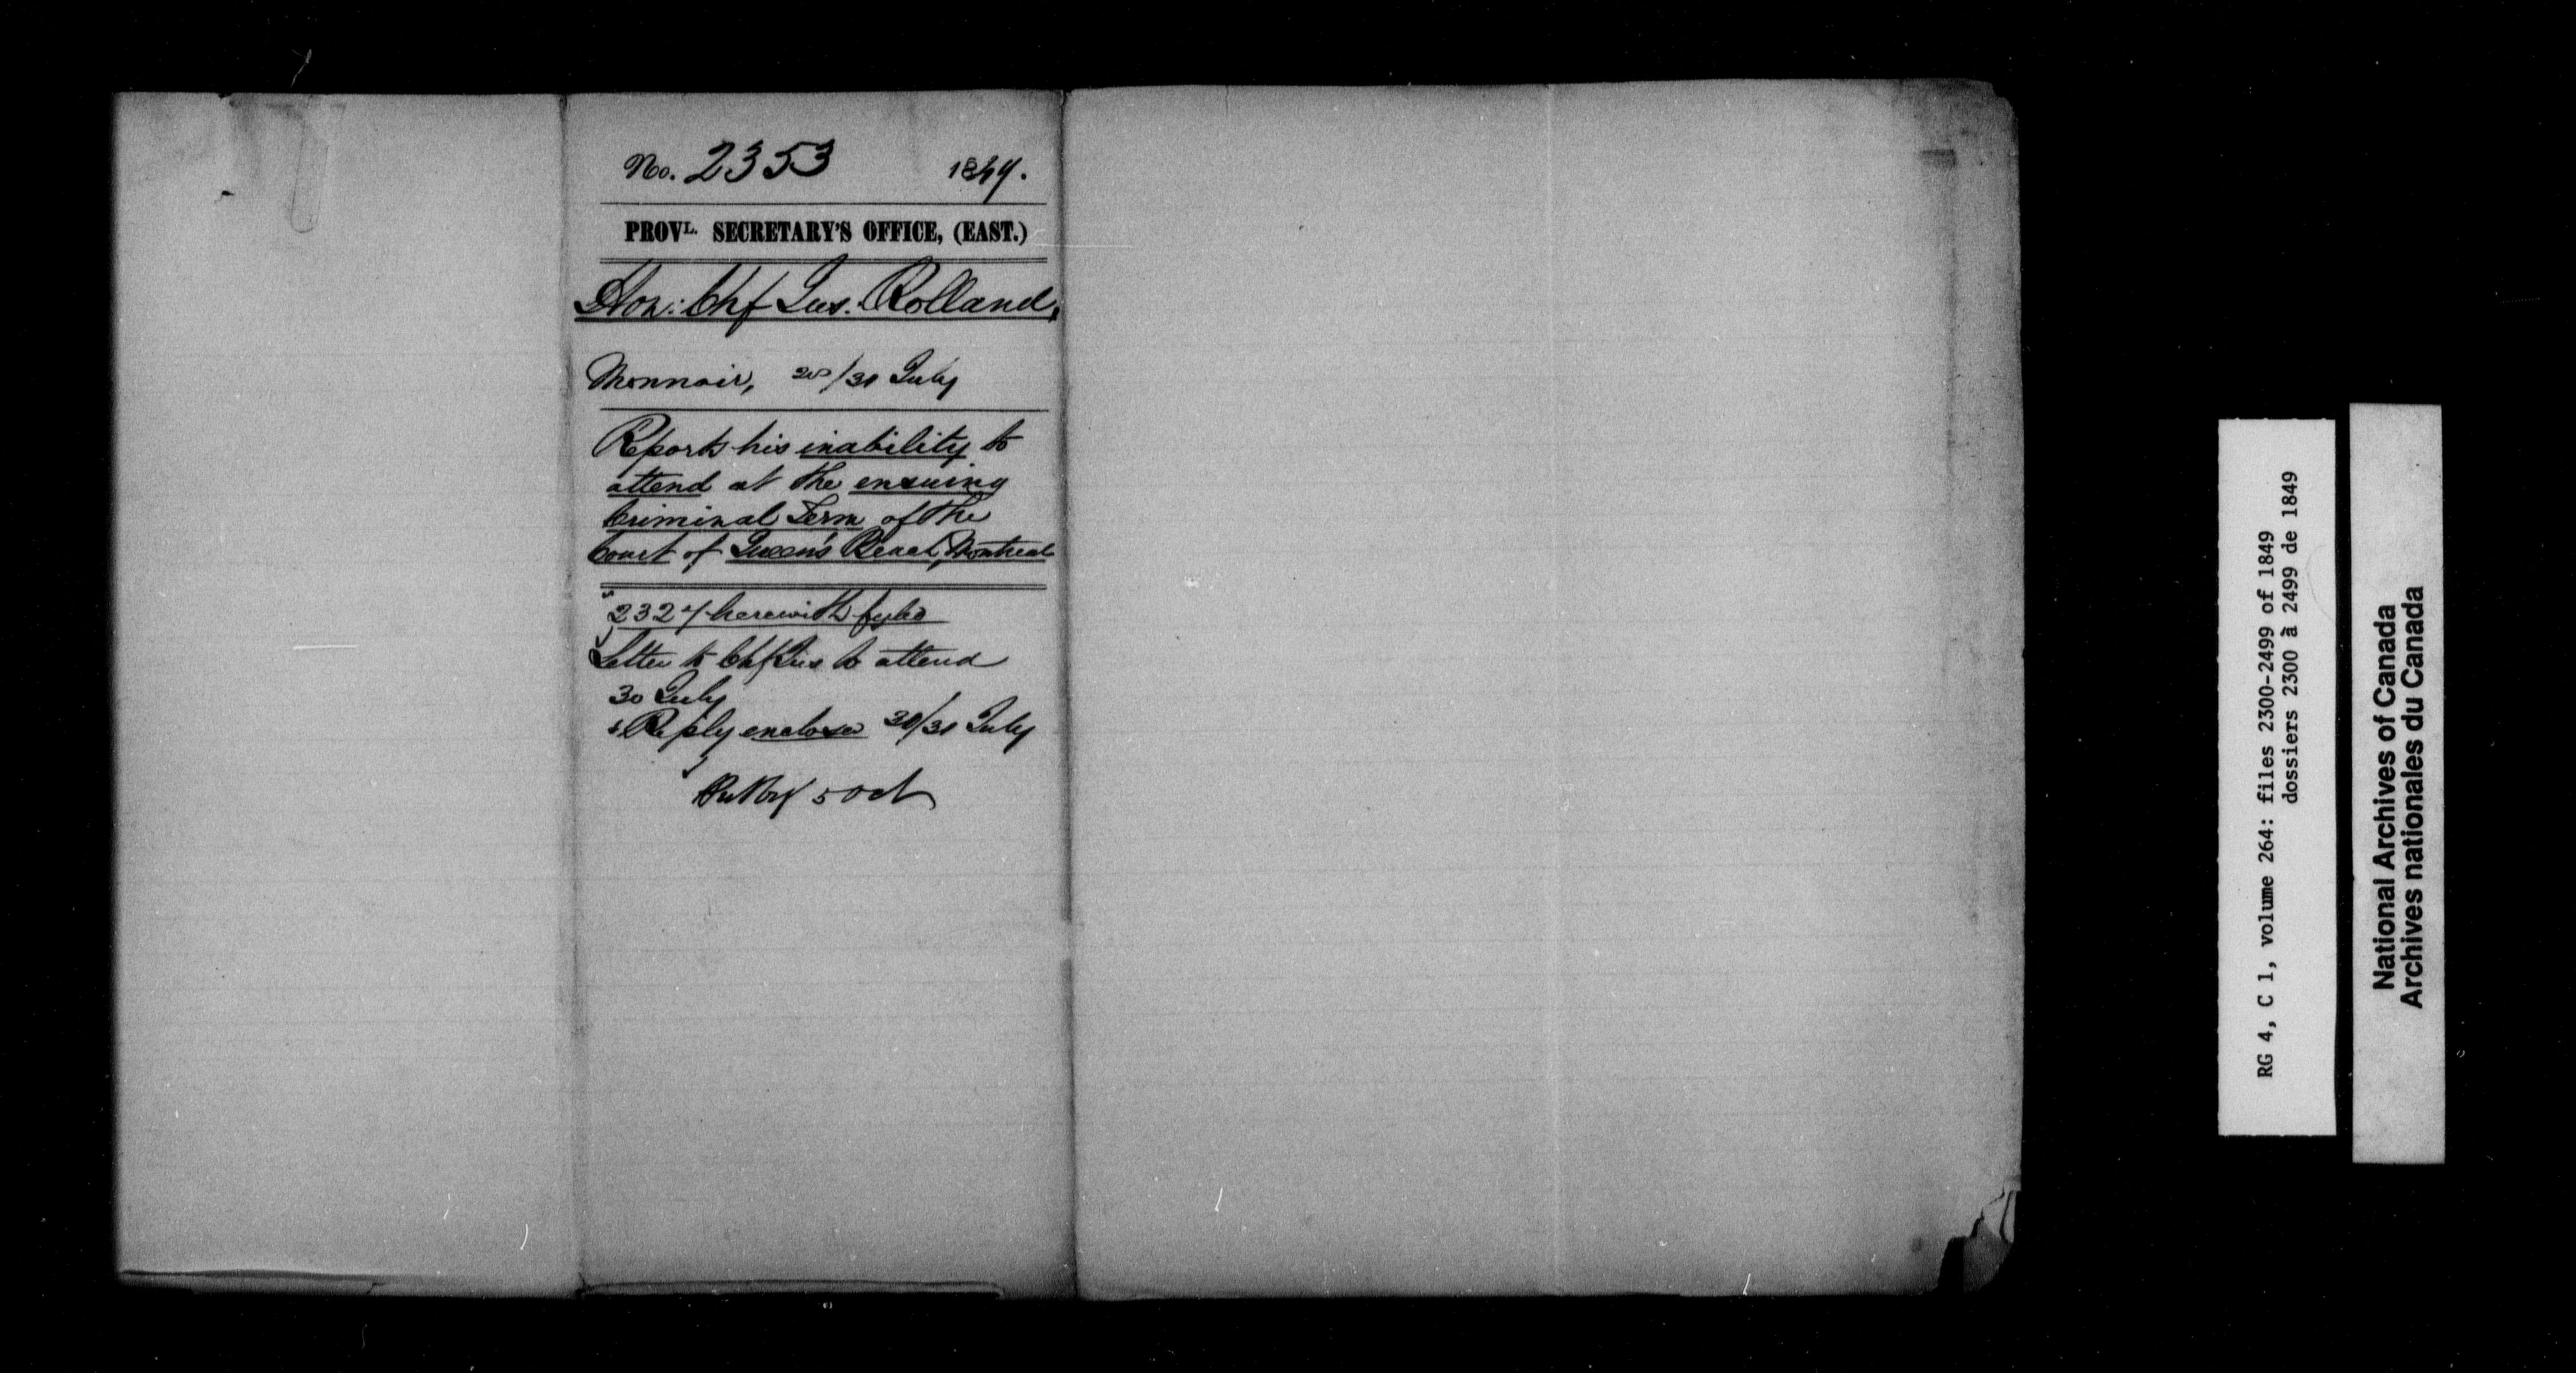 No. 2353 1849.
PROVL. SECRETARY'S OFFICE, (EAST.)
Hon: Chf Jus. Rolland,
Monnoir, /31 July
Reports his inability to
attend at the ensuing
Criminal Term of the
Court of Queen's Bench, Montreal
herewith fyled
Letter to Chf Jus to attend
30 July
& Reply enclosed 30/31 July
5 Oct
RG 4, C 1, volume 264: files 2300-2499 of 1849
dossiers 2300 à 2499 de 1849
National Archives of Canada
Archives nationales du Canada